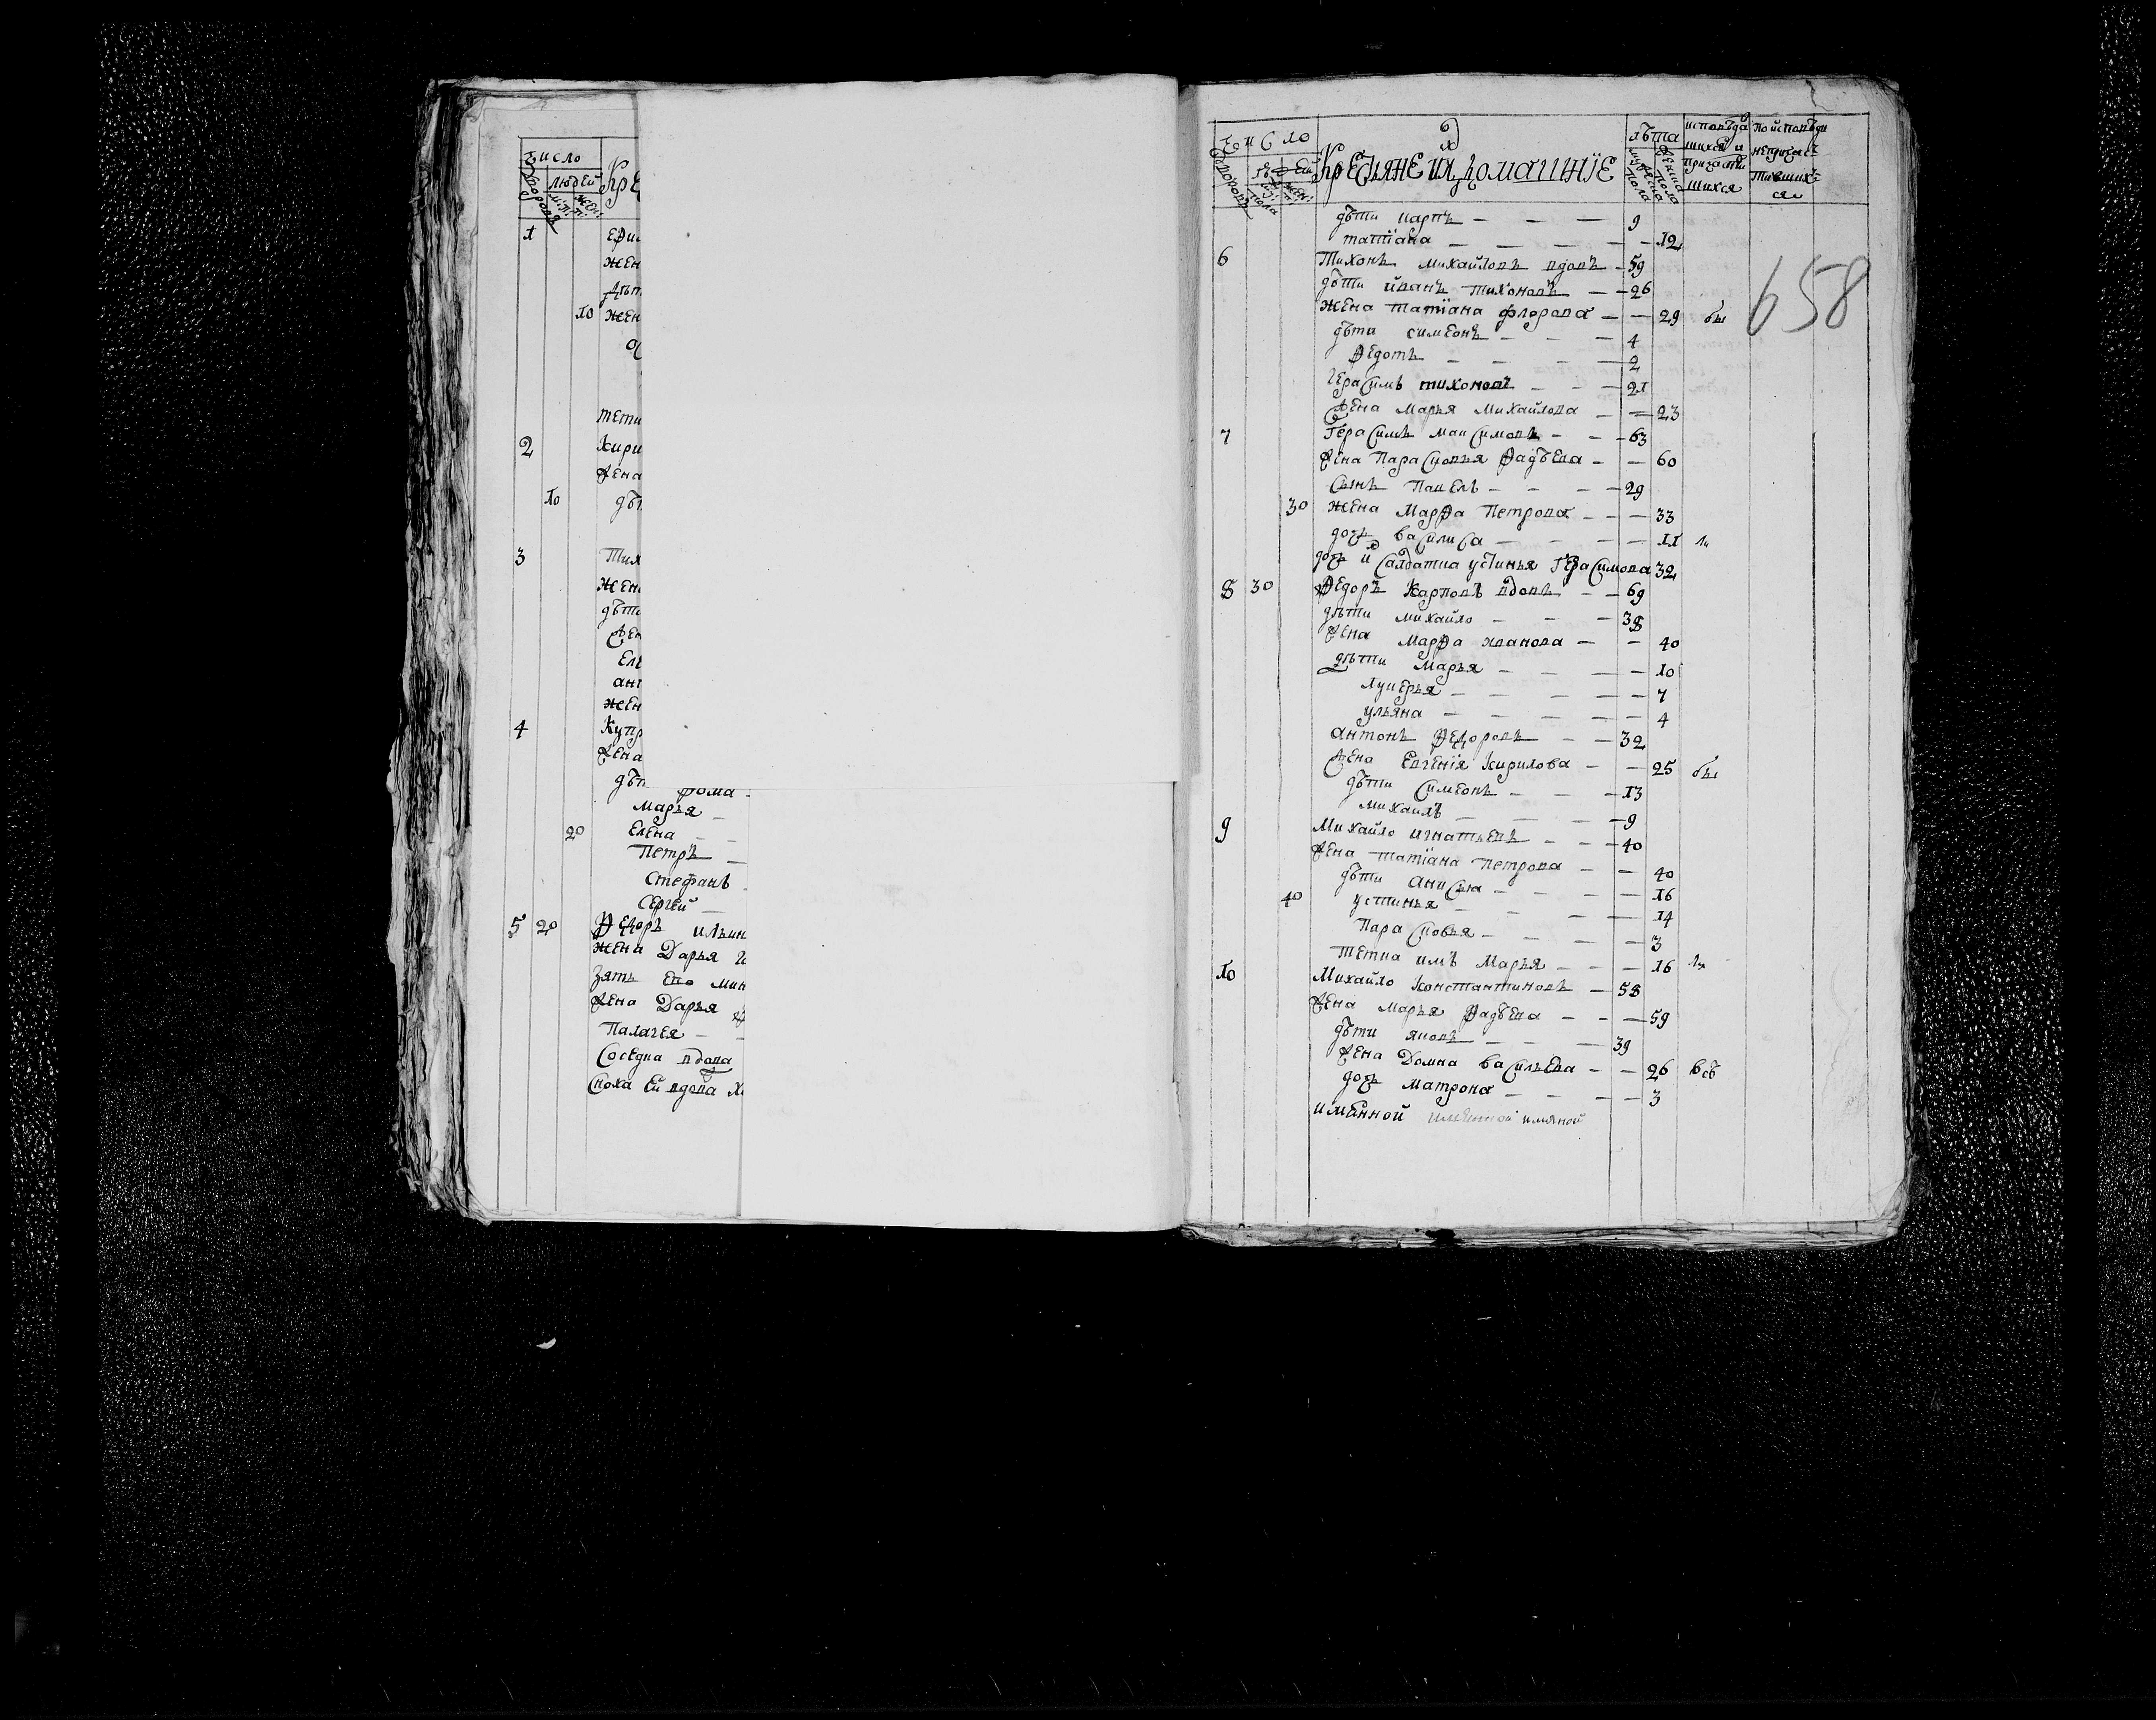 Число
дворовъ людей Кре
м: п: жен: п:
1 Ефи
жен
дѣт
10 жен
тетк
2 Кири
жена
10 дѣт
3 Тих
жен
дѣти
жен
Еле
ант
жен
4 Купр
жена
дѣт
Фома
Марья
20 Елена
Петръ
Стефанъ
Сергѣй
5 20 Федоръ ильин
жена Дарья
зять Ево мин
жена Дарья
Палагея
Соседка вдова
Сноха Ей вдова
Число Крестьяне и их домашнїе лѣта исповѣдавшихся и причастившихся по исповѣди непричастившихся
дѣти карпъ 9
татїана 12
6 Тихонъ михайловъ вдовъ 59
дѣти иванъ тихоновъ 26
жена татїана флорова 29 бы
дѣти симеонъ 4
Федотъ 2
Герасимъ тихоновъ 21
жена марья михайлова 23
7 Герасимъ максимовъ 63
жена Парасковья Фадѣева 60
сынъ Павелъ 29
30 жена Марфа Петрова 33
дочь василиса 11
дочь их салдатка устинья Герасимова 32
8 30 Федоръ Карповъ вдовъ 69
дѣти михайло 38
жена марфа иванова 40
дѣти марья 10
лукерья 7
ульяна 4
антонъ Федоровъ 32
жена Евгенїя кирилова 25 бы
дѣти симеонъ 13
михаилъ 9
9 михайло игнатьевъ 40
жена татїана петрова 40
дѣти анисья 16
40 устинья 14
Парасковья 3
тетка имъ Марья 16
10 Михайло константиновъ 58
жена марья Фадѣева 59
дѣти яковъ 39
жена Домна васильева 26
дочь матрона 3
имянной имянной имяной
658